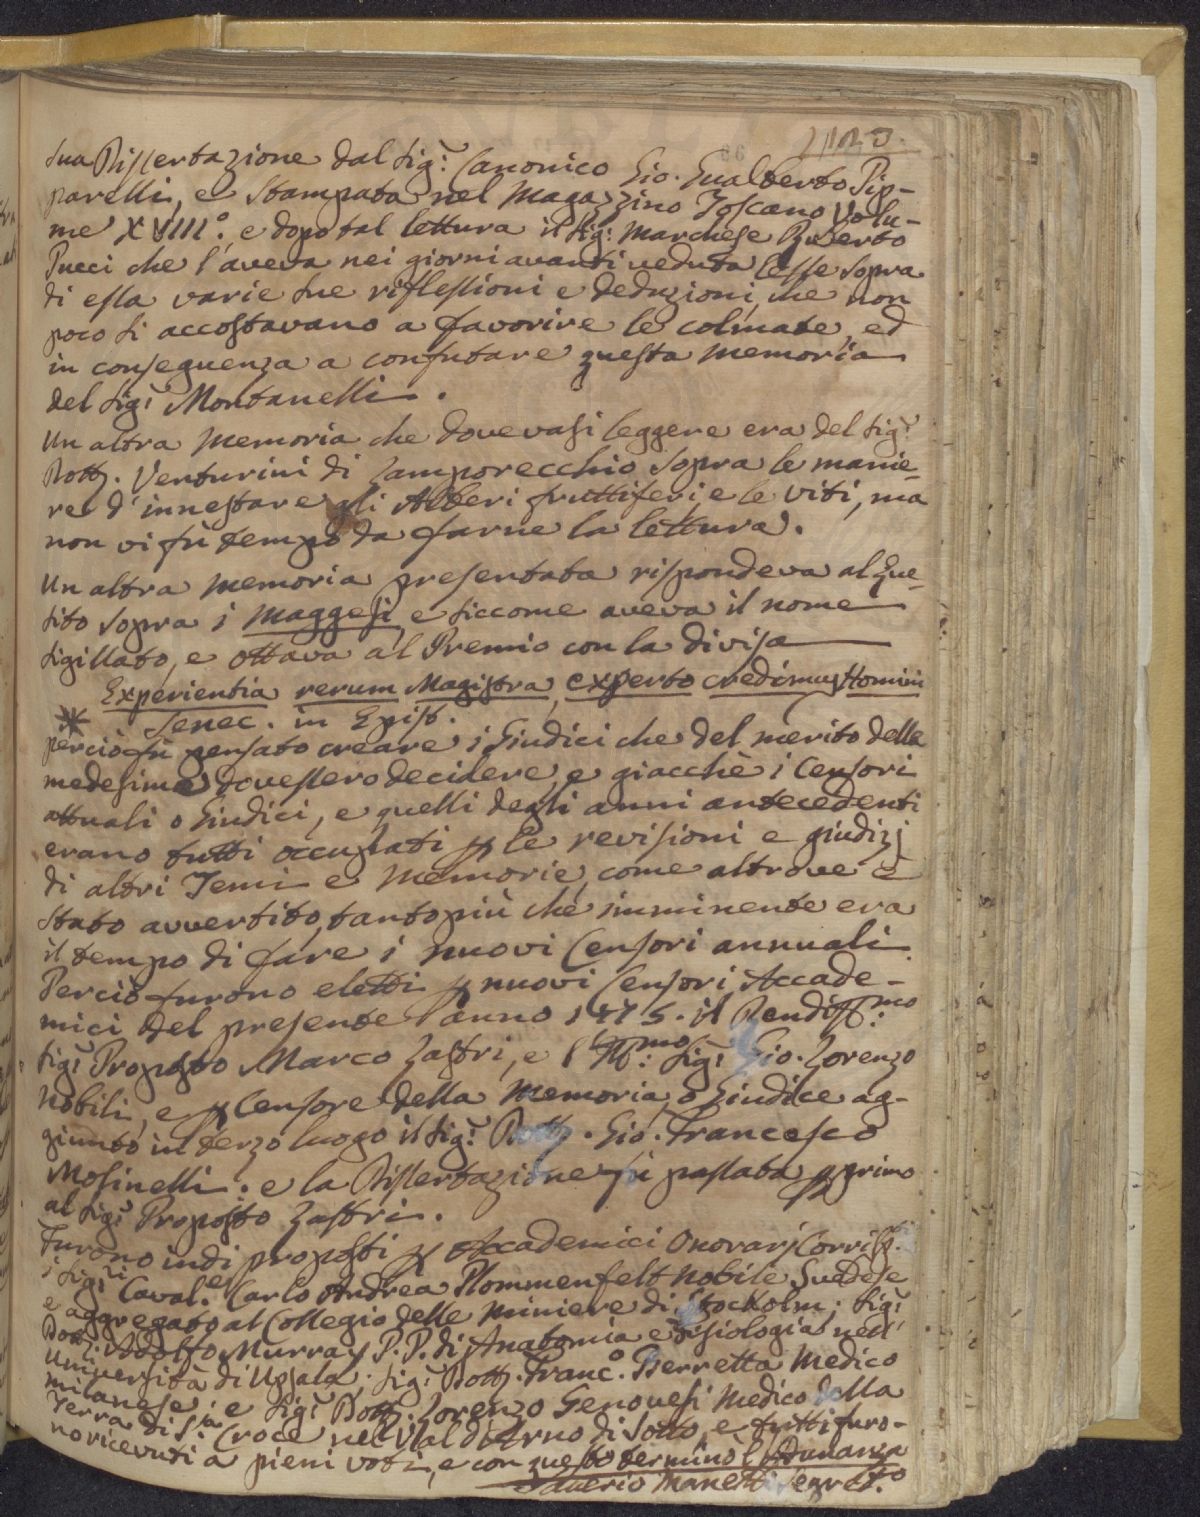 sua Dissertazione dal Sig.r Canonico Gio. Gualberto Pip-
parelli, e Stampata nel Magazzino Toscano Volu-
me XVIII.°, e dopo tal lettura il Sig.r Marchese Ruberto
Pucci che l'aveva nei giorni avanti veduta lesse sopra
di essa varie sue riflessioni e deduzioni, che non
poco si accostavano a favorire le colmate, ed
in conseguenza a confutare questa Memoria
del Sig.r Montanelli.
Un altra Memoria che dovevasi leggere era del Sig.r
Dott. Venturini di Lamporecchio sopra le manie-
re d'innestare gli Alberi fruttiferi, e le viti, ma
non vi fù tempo da farne la lettura.
Un altra Memoria presentata rispondeva al Que-
sito sopra i Maggesi, e siccome aveva il nome
sigillato, e ottava al Premio con la divisa
Experientia rerum Magistra, experto credimus Homini
Senec. in Epist.
perciò fù pensato creare i Giudici che del merito della
medesima dovessero decidere, e giacchè i Censori
attuali o Giudici, e quelli degli anni antecedenti
erano tutti occupati p le revisioni e giudizj
di altri Temi e Memorie, come altrove è
stato avvertito, tanto più che imminente era
il tempo di fare i nuovi Censori annuali
Perciò furono eletti p nuovi Censori Accade-
mici del presente anno 1775. il Rendiss.mo
Sig.r Proposto Marco Lastri, e l'Ill.mo Sig.r Gio. Lorenzo
Nobili, e p Censore della Memoria, o Giudice ag-
giunto in terzo luogo il Sig.r Dott. Gio. Francesco
Mosinelli; e la Dissertazione fù passata p primo
al Sig.r Proposto Lastri.
Furono indi proposti p Accademici Onorarj Corrisp.ti
i Sig.ri Caval.e Carlo Andrea Plommenfelt Nobile Suedese
e aggregato al Collegio delle Miniere di Stockolm; Sig.r
Dott. Adolfo Murray P. P. di Anatomia e Fisiologia nell'
Università di Upsala; Sig.r Dott. Franc.o Berretta Medico
milanese; e Sig.r Dott. Lorenzo Genovesi Medico della
Terra di S.ta Croce nel Val d'Arno di Sotto, e tutti furo-
no ricevuti a pieni voti, e con questo terminò l'Adunanza
Saverio Manetti Segret.o